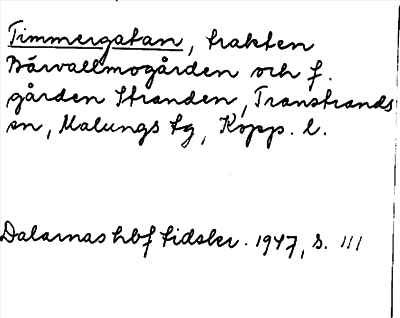 Timmergatan, trakten
Bärvallmogården och f.
gården Stranden, Transtrands
sn, Malungs tg, Kopp. l.
Dalarnas hbf tidskr. 1947, s. 111